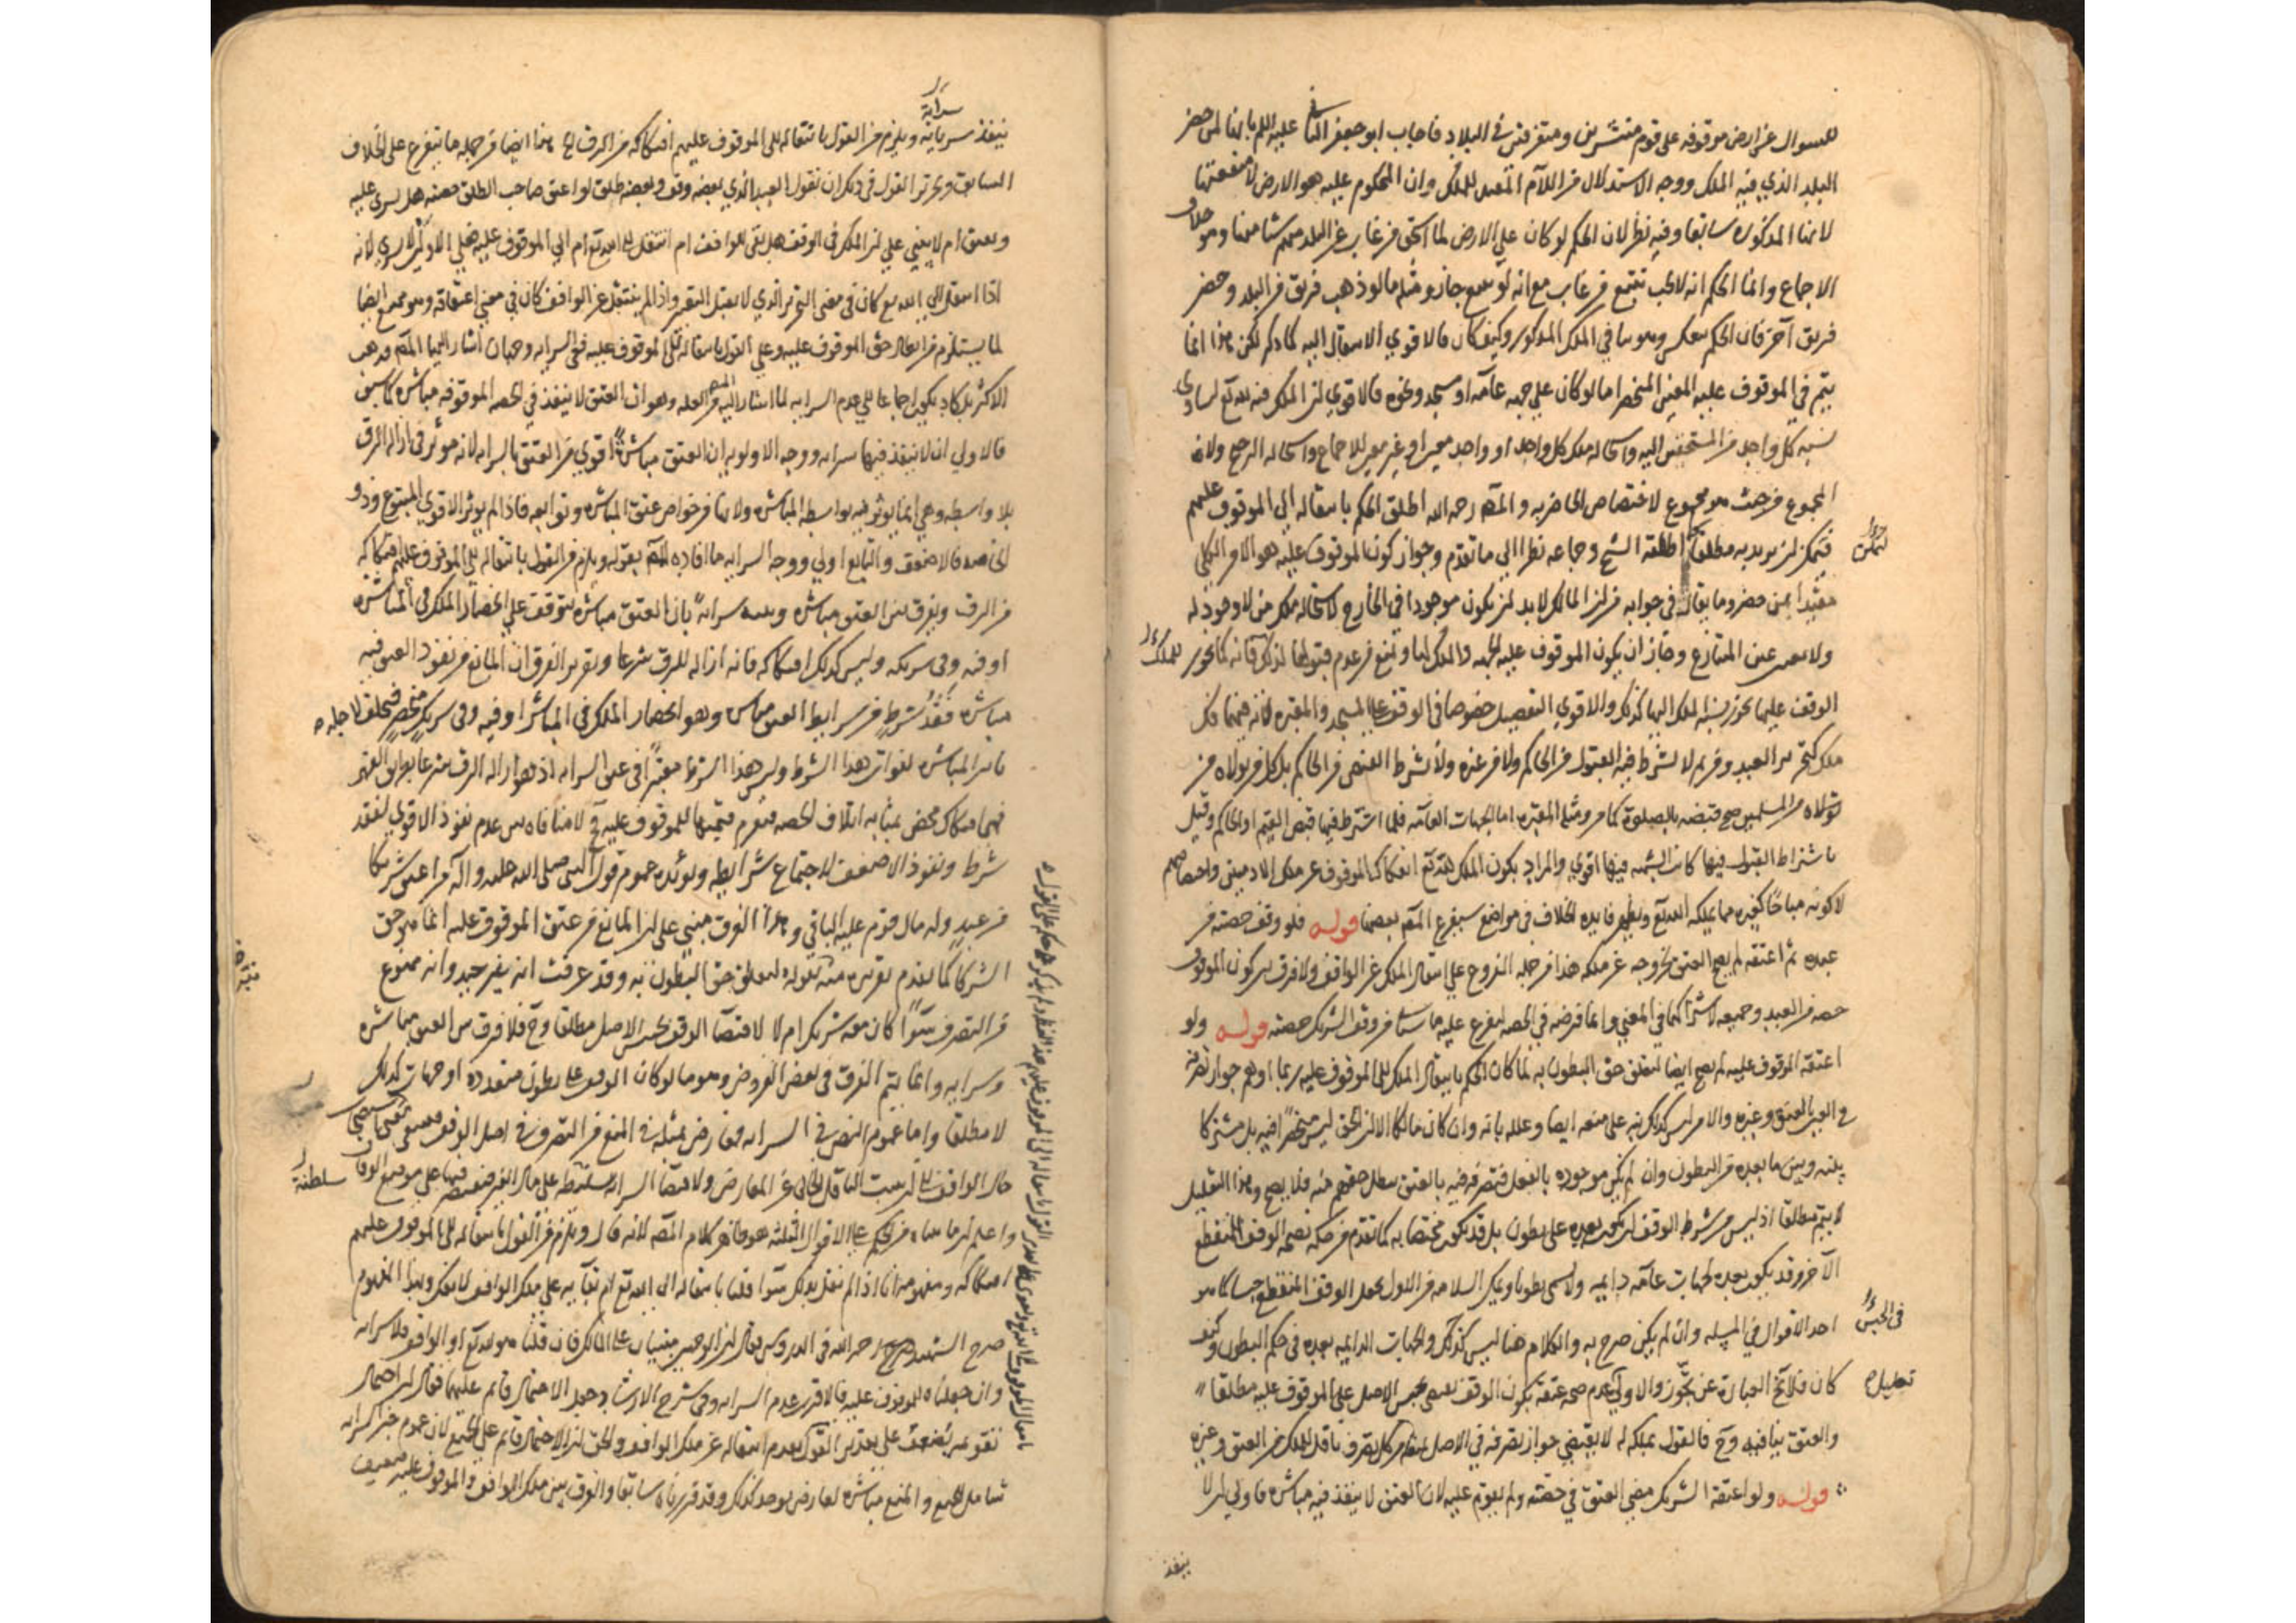 للسوال عن ارض موقوفه على قوم منتشرين ومتفرقين في البلاد فاجاب ابو جعفر الثاني عليه السلم بانها لمن حضر
البلد الذي فيه الملك ووجه الاستدلال من اللام المفيد للملك وان المحكوم عليه هو الارض لا منفعتها
لانها المذكوره سابقا وفيه نظر لان الحكم لو كان على الارض لما استحق من غاب عن البلد منهم شيا منها وهو خلاف
الاجماع وانما الحكم انه لا يجب تتبع من غاب مع انه لو تتبع جاز ومثله ما لو ذهب فريق من البلد وحضر
فريق آخر فان الحكم ينعكس وهو ينافي الملك المذكور وكيف كان فالاقوي الانتقال اليه لما ذكر لكن هذا انما
يتم في الموقوف عليه المعين المنحصر اما لو كان على جهه عامه او مسجد ونحوه فالاقوي ان الملك فيه لله تع لتساوي
نسبه كل واحد من المستحقين اليه واستحاله ملك كل واحد او واحد معين او غير معين للاجماع واستحاله الترجيح ولا
المجموع من حيث هو مجموع لاختصاص الحاضر به والمص رحمه الله اطلق الحكم بانتقاله الي الموقوف عليهم
فيمكن ان يريد به مطلقا كما اطلقه الشيخ وجماعه نظرا الى ما تقدم وجواز كون الموقوف عليه هو الامر الكلي
جواز
مقيدا بمن حضر وما يقال في جوابه من ان المالك لابد ان يكون موجودا في الخارج لاستحاله ملك من لا وجود له
ولا تعين عين المتنازع وجاز ان يكون الموقوف عليه الجهه والملك لها ونمنع من عدم قبولها لذلك فانه كما يجوز
للملك
الوقف عليها يجوز نسبه الملك اليها كذلك والاقوي التفصيل خصوصا في الوقف على المسجد والمقبره لانه فيهما فك
ملك كتحرير العبد ومن ثم لا يشترط فيه القبول من الحاكم ولا من غيره ولا يشترط القبض من الحاكم بل كل من تولاه من
تولاه من المسلمين صح قبضه بالصلوة كما مر ومثله المقبره اما الجهات العامه فلما اشترط فيها قبض القيم او الحاكم وقيل
باشتراط القبول فيها كانت الشبهه فيها اقوي والمراد بكون الملك لله تع انفكاك الموقوف عن ملك الادميين واختصاصهم
لا كونه مباحا كغيره مما يملكه الله تع وتظهر فايده الخلاف في مواضع سيفرع المص بعضها قوله فلو وقف حصته من
عبده ثم اعتقه لم يصح العتق لخروجه عن ملكه هذا من جمله الفروع على انتقال الملك عن الواقف ولا فرق بين كون الموقوف
حصه من العبد وجميعه لاشتراكهما في المعني وانما فرضه في الحصه ليفرع عليه ما سياتي من وقف الشريك حصته قوله ولو
اعتقه الموقوف عليه لم يصح ايضا لتعلق حق البطون به لما كان الحكم بانتقال الملك الي الموقوف عليه ربما اوهم جواز تصرفه
في العبد بالعتق وغيره والامر ليس كذلك نبه على منعه ايضا وعلله بانه وان كان مالكا الا ان الحق ليس منحصرا فيه بل مشتركا
بينه وبين ما بعده من البطون وان لم يكن موجوده بالفعل فتصرفه فيه بالعتق يبطل حقهم منه فلا يصح وهذا التعليل
لا يتم مطلقا اذ ليس من شرط الوقف ان يكون بعده على بطون بل قد يكون مختصا به كما تقدم من حكمه بصحه الوقف المنقطع
الآخر وقد يكون بعده لجهات عامه دايمه ولا تسمى بطونا ويمكن السلامه من الاول بجعل الوقف المنقطع حبسا كما هو
احد الاقوال في المسئله وان لم يكن صرح به والكلام هنا ليس كذلك والجهات الدايمه بعده في حكم البطون وكيف
في الحبس
كان فلا تخ العباره عن تجوز والاولي تعليل عدم صحه عتقه بكون الوقف يقتضي تحبيس الاصل على الموقوف عليه مطلقا
والعتق ينافيه وح فالقول بملكه له لا يقتضي جواز تصرفه في الاصل بنقل وكل تصرف ناقل للملك من العتق وغيره
قوله ولو اعتقه الشريك مضي العتق في حصته ولم يقوم عليه لان العتق لا ينفذ فيه مباشره فاولي ان لا
ينفذ
سراية
ينفذ سرايه ويلزم من القول بانتقاله الى الموقوف عليهم افتكاكه من الرق الخ هذا ايضا من جمله ما يتفرع على الخلاف
السابق وتحرير القول في ذلك ان نقول العبد الذي بعضه وقف وبعضه طلق لو اعتق صاحب الطلق حصته هل يسري عليه
ويعتق ام لا يبني على ان الملك في الوقف هل بقي للواقف ام انتقل الى الله تع ام الي الموقوف عليه فعلى الاولين لا يسري لانه
اذا انتقل الي الله تع كان في معنى التحرير الذي لا يقبل التغيير واذا لم ينتقل عن الواقف كان في معني اعتاقه وهو ممتنع ايضا
لما يستلزم من ابطال حق الموقوف عليه وعلى القول بانتقاله الى الموقوف عليه ففي السرايه وجهان اشار اليهما المص فذهب
الاكثر بل كاد يكون اجماعا الى عدم السرايه لما اشار اليه المص من العله وهو ان العتق لا ينفذ في الحصه الموقوفه مباشره كما سبق
فالاولي ان لا ينفذ فيها سرايه ووجه الاولويه ان العتق مباشره اقوي من العتق بالسرايه لانه موثر في ازاله الرق
بلا واسطه وهي انما يوثر فيه بواسطه المباشره ولانها من خواص عتق المباشره وتوابعه فاذا لم يوثر الاقوي المتبوع ذو
الخاصه فالاضعف والتابع اولي ووجه السرايه ما افاده المص بقوله ويلزم من القول بانتقاله الى الموقوف عليهم افتكاكه
من الرق ويفرق بين العتق مباشره وبينه سرايه بان العتق مباشره يتوقف على انحصار الملك في المباشره
او فيه وفي شريكه وليس كذلك افتكاكه فانه ازاله للرق شرعا وتقرير الفرق ان المانع من نفوذ العتق فيه
مباشره فقد شرط من شرايط العتق مباشره وهو انحصار الملك في المباشر او فيه وفي شريك منحصر فتخلف لاجله
تاثير المباشره لفوات هذا الشرط وليس هذا الشرط معتبرا في عتق السرايه اذ هو ازاله الرق شرعا بطريق القهر
فهي افتكاك محض بمثابه اتلاف الحصه فيغرم قيمتها للموقوف عليه فح لا منافاه بين عدم نفوذ الاقوي لفقد
شرط ونفوذ الاضعف لاجتماع شرايطه ويؤيده عموم قول النبي صلى الله عليه وآله من اعتق شركا
من عبد وله مال قوم عليه الباقي وهذا الفرق مبني على ان المانع من عتق الموقوف عليه انما هو حق
الشركا كما تقدم تقريره منه بقوله لتعلق حق البطون به وقد عرفت انه غير جيد وانه ممنوع
من التصرف سوا كان معه شريك ام لا لاقتضا الوقف تحبيس الاصل مطلقا وح فلا فرق بين العتق مباشره
وسرايه وانما يتم الفرق في بعض الفروض وهو ما لو كان الوقف على بطون متعدده او جهات كذلك
لا مطلقا واما عموم النص في السرايه فمعارض بمثله في المنع من التصرف في اصل الوقف
سلطنة
واعلم ان ما بيناه من الحكم على الاقوال الثلثه هو ظاهر كلام المص لانه قال ويلزم من القول بانتقاله الى الموقوف عليهم
افتكاكه ومفهومه انا اذا لم نقل بذلك سوا قلنا بانتقاله الى الله تع ام بقايه على ملك الواقف لا يفك وبهذا المفهوم
صرح الشهيد رحمه الله في الدروس فقال ان الوجهين مبنيان على المالك فان قلنا هو لله تع او الواقف فلا سرايه
وان جعلناه للموقوف عليه فالاقرب عدم السرايه وفي شرح الارشاد جعل الاحتمال قايم عليهما فقال ان احتمال
تقويمه يضعف على تقدير القول بعدم انتقاله عن ملك الواقف والحق ان الاحتمال قايم على الجميع لان عموم خبر السرايه
شامل للجميع والمنع مباشره لعارض يوجد كذلك وقد قررناه سابقا والفرق بين ملك الواقف والموقوف عليه ضعيف